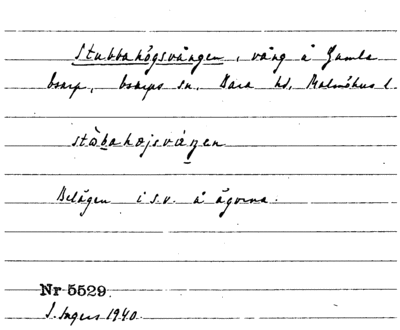 Stubbahögsvången, vång å Gamla
torp, torps sn. Bara hd. Malmöhus l.
stὰbahøjsváŋen
Belägen i s.v. å ägorna.
Nr 5529
I. Ingers 1940.